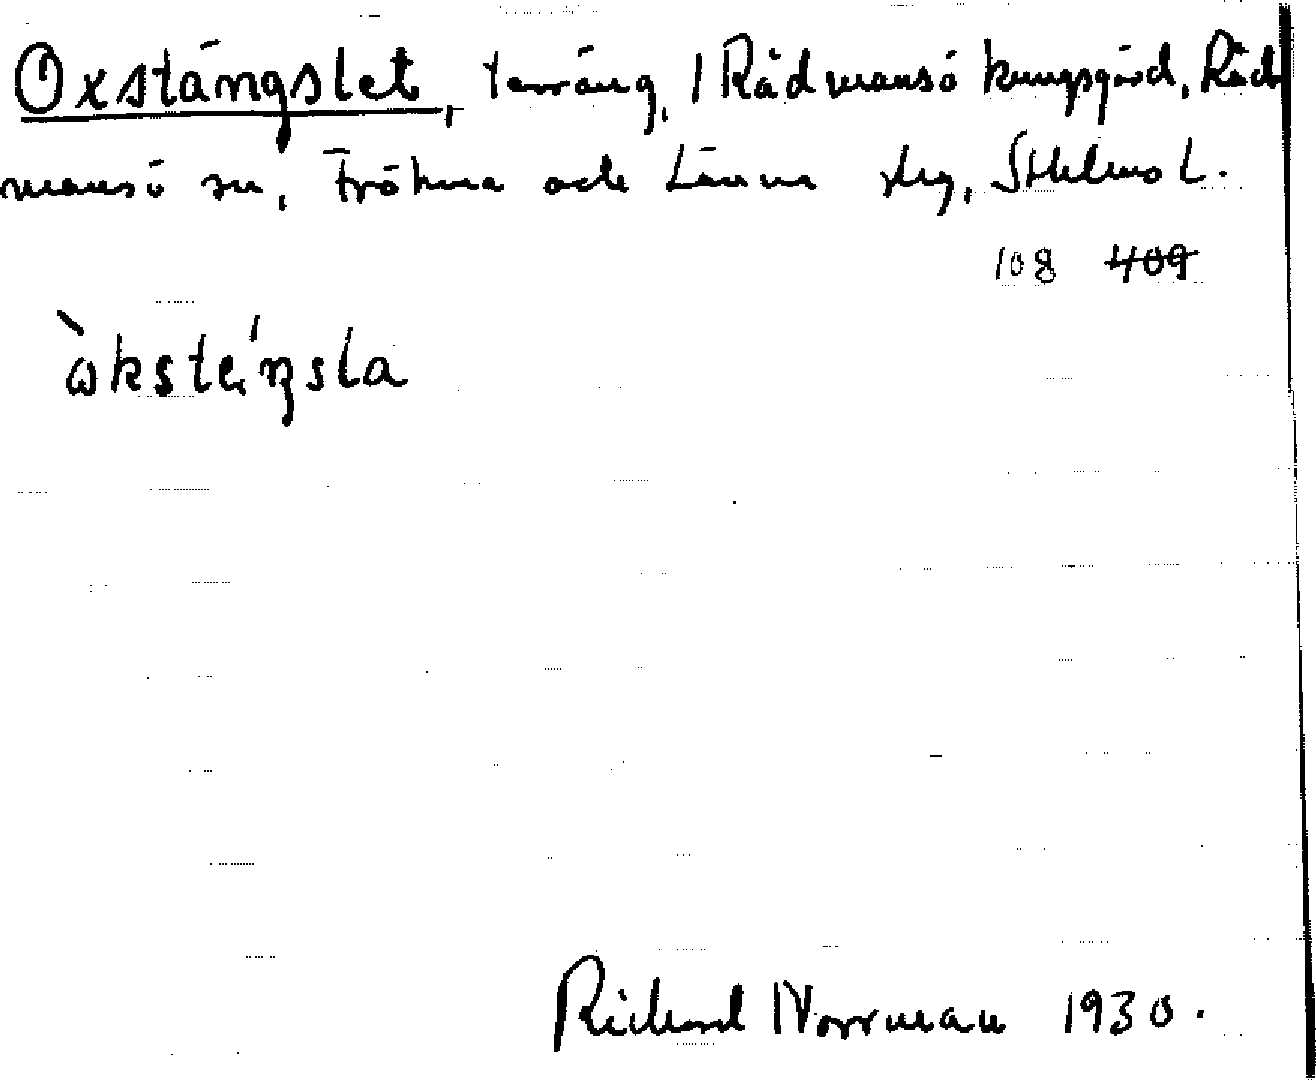 Oxstängslet, terräng, 1 Rådmansö kungsgård, Råd-
mansö sn, Frötuna och Länna skg, Sthlms L.
108 409
ὼkste̜ŋ́sla
Richard Norrman 1930.